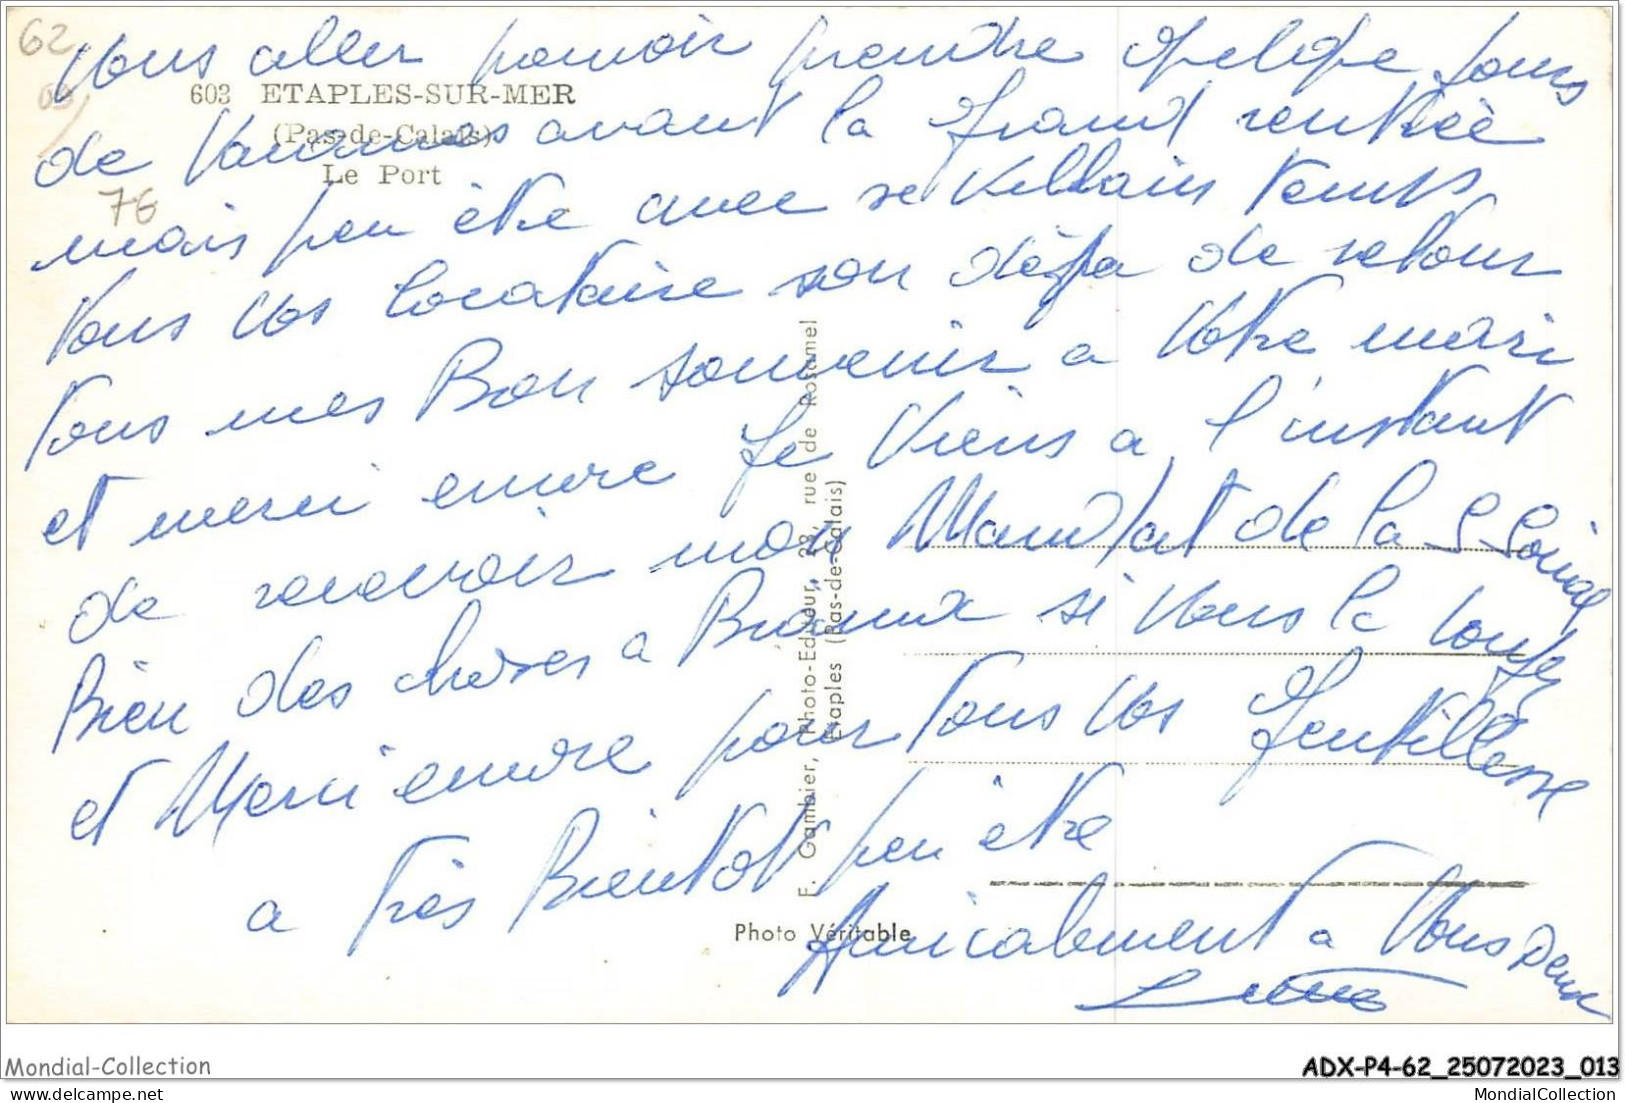 62
Vous aller pouvoir prendre quelque jours
603 ETAPLES-SUR-MER
(Pas-de-Calais)
Le Port
76
de Vacances avant la grand rentrée
mais peu être avec se villain temps
Vous vos locataire son déja de retour
Tous mes Bon souvenir a Votre mari
et merci encore Je Viens a l'instant
de recevoir mon Mandat de la S Social
Bien des choses a si Vous le
et Merci encore pour Tous Vos Gentillesse
a Très Bientot peu être
Amicalement a Vous Deux
F. Gambier, Photo-Editeur, 28, rue de Rosamel
Etaples (Pas-de-Calais)
Photo Véritable
Mondial-Collection
ADX-P4-62_25072023_013
http://www.delcampe.net
MondialCollection